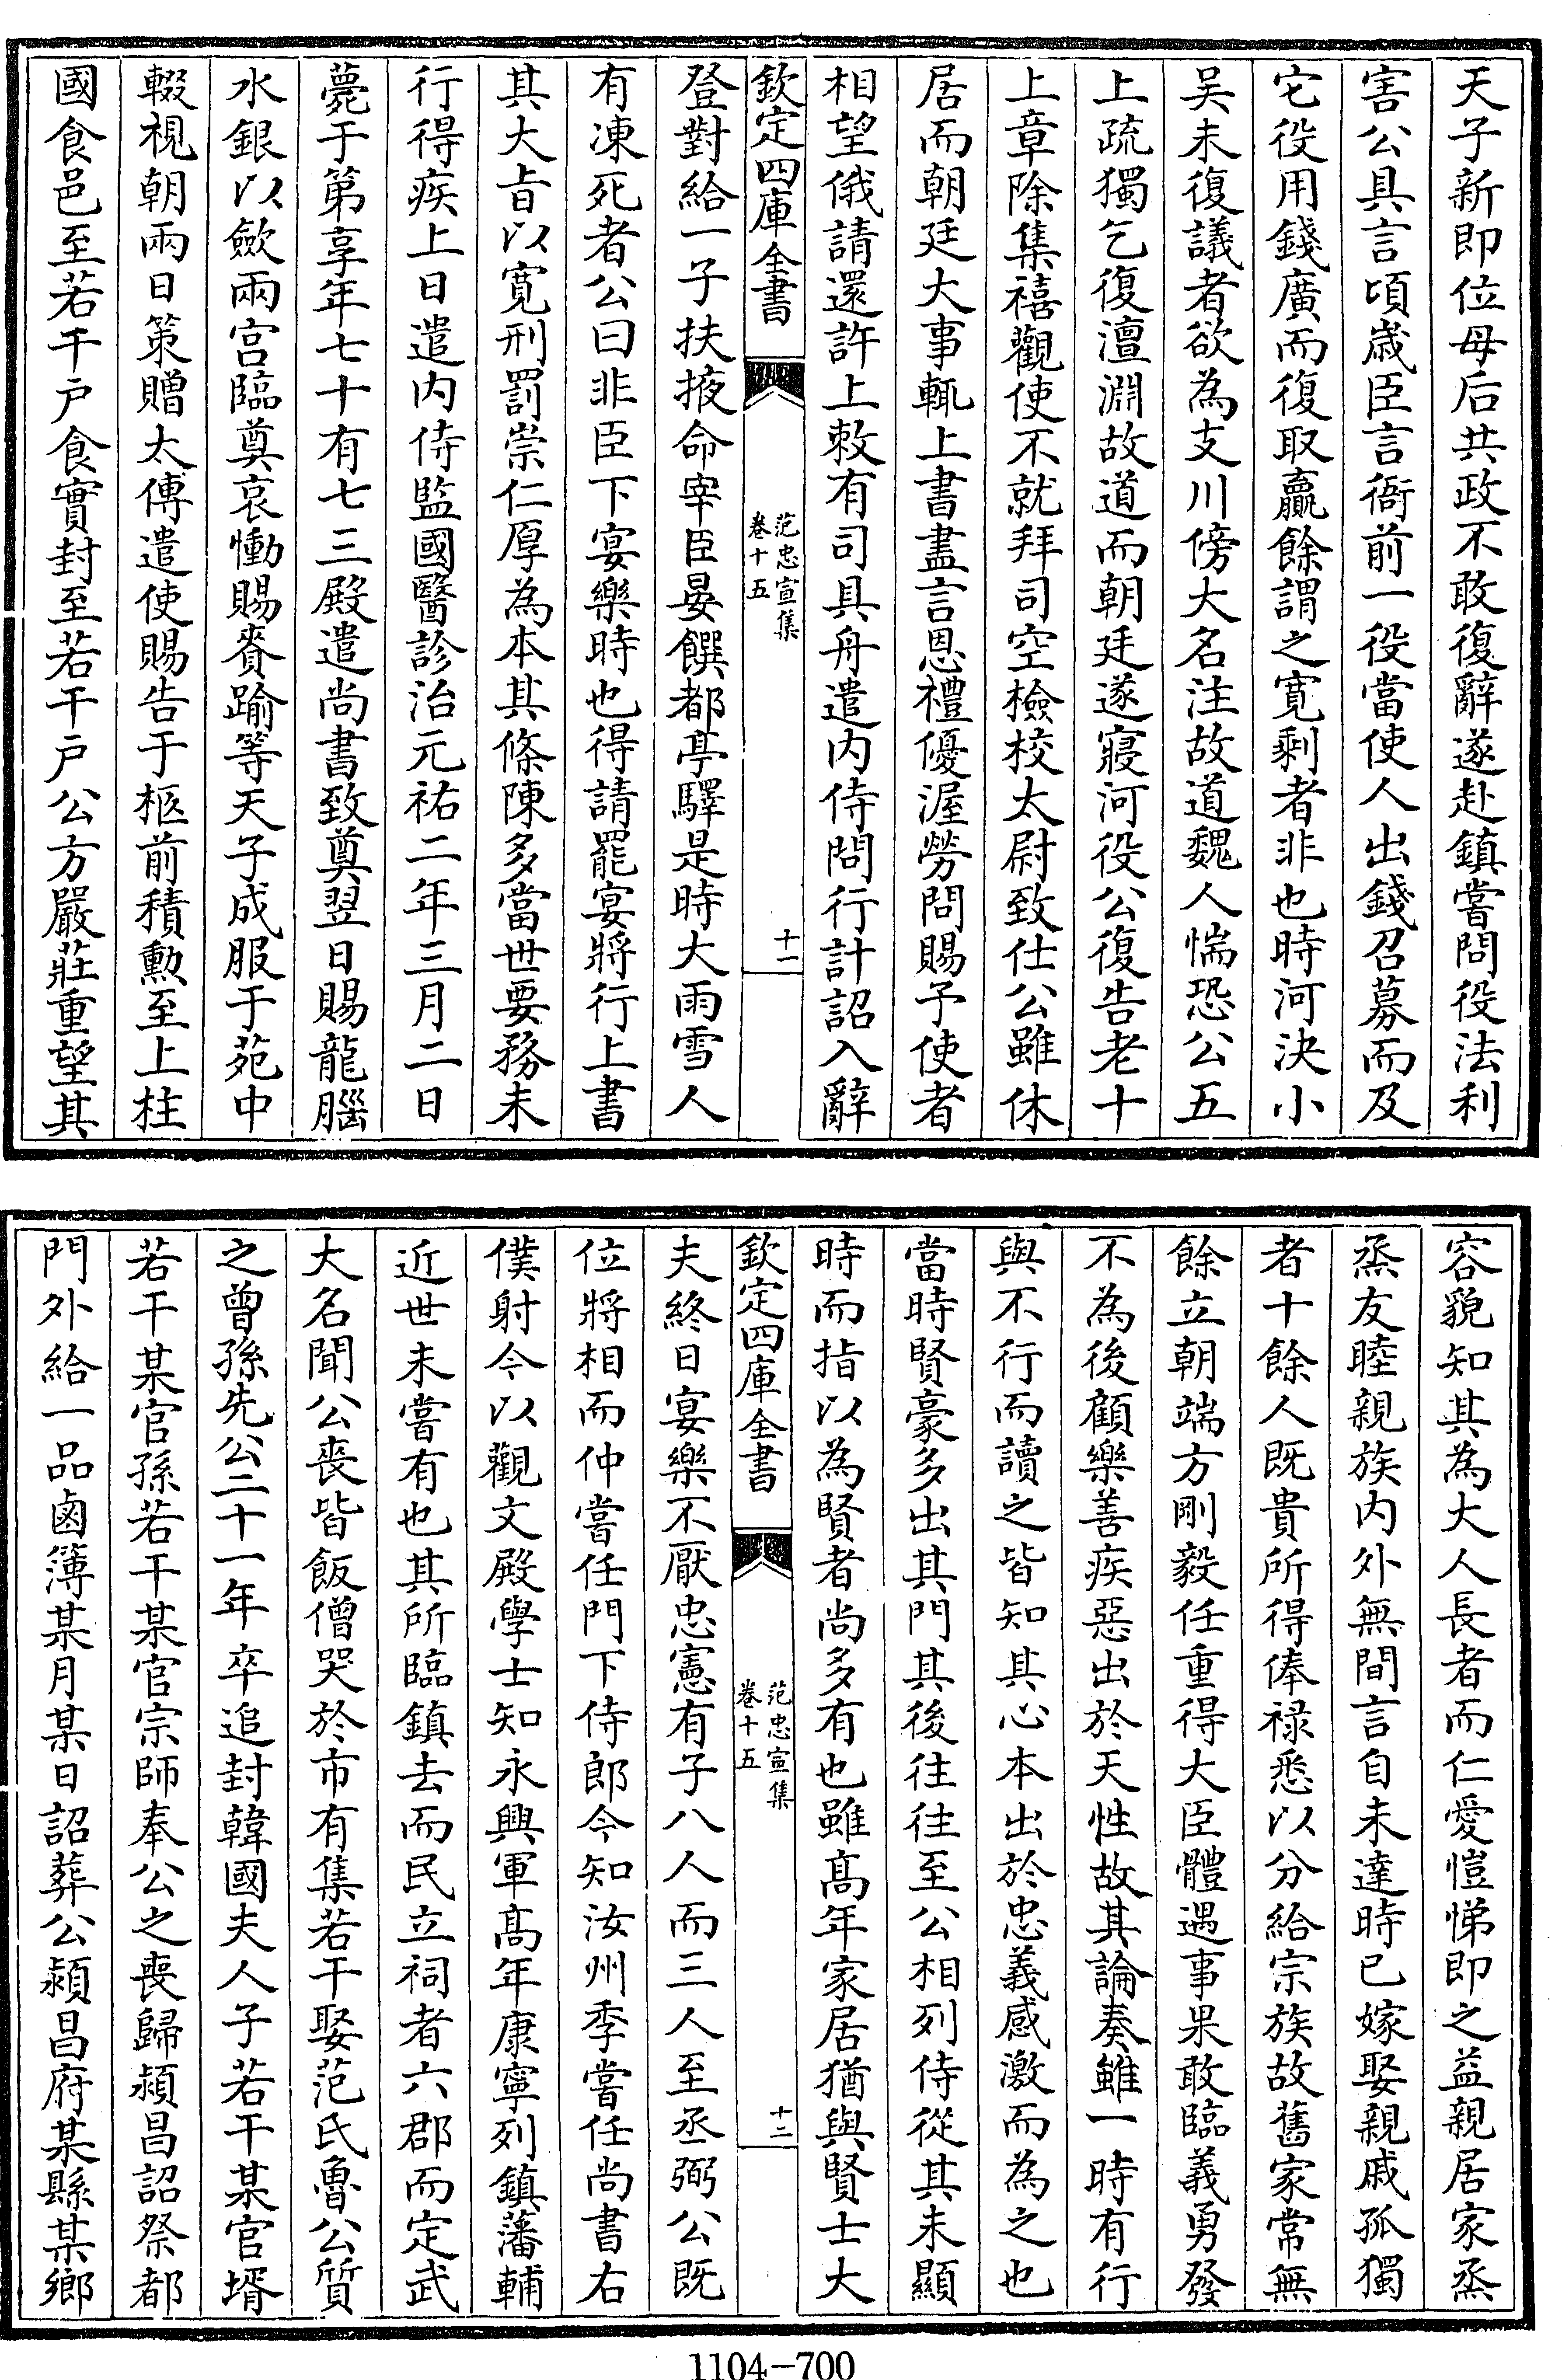 天子新即位母后共政不敢復辭遂赴鎮嘗問役法利
害公具言頃歲臣言衙前一役當使人出錢召募而及
它役用錢廣而復取贏餘謂之寛剩者非也時河決小
吴未復議者欲為支川傍大名注故道魏人惴恐公五
上疏獨乞復澶淵故道而朝廷遂寢河役公復告老十
上章除集禧觀使不就拜司空檢校太尉致仕公雖休
居而朝廷大事輒上書盡言恩禮優渥勞問賜予使者
相望俄請還許上敕有司具舟遣内侍問行計詔入辭
欽定四庫全書
范忠宣集
卷十五
十一
登對給一子扶掖命宰臣晏饌都亭驛是時大雨雪人
有凍死者公曰非臣下宴樂時也得請罷宴將行上書
其大㫖以寛刑罰崇仁厚為本其條陳多當世要務未
行得疾上日遣内侍監國醫診治元祐二年三月二日
薨于第享年七十有七三殿遣尚書致奠翌日賜龍腦
水銀以斂兩宫臨奠哀慟賜賚踰等天子成服于苑中
輟視朝兩日策贈太傅遣使賜告于柩前積勳至上柱
國食邑至若干户食實封至若干户公方嚴莊重望其
容貌知其為大人長者而仁愛愷悌即之益親居家烝
烝友睦親族内外無間言自未達時已嫁娶親戚孤獨
者十餘人既貴所得俸禄悉以分給宗族故舊家常無
餘立朝端方剛毅任重得大臣體遇事果敢臨義勇發
不為後顧樂善疾惡出於天性故其論奏雖一時有行
與不行而讀之皆知其心本出於忠義感激而為之也
當時賢豪多出其門其後往往至公相列侍從其未顯
時而指以為賢者尚多有也雖髙年家居猶與賢士大
欽定四庫全書
范忠宣集
卷十五
十二
夫終日宴樂不厭忠憲有子八人而三人至丞弼公既
位將相而仲嘗任門下侍郎今知汝州季嘗任尚書右
僕射今以觀文殿學士知永興軍髙年康寧列鎮藩輔
近世未嘗有也其所臨鎮去而民立祠者六郡而定武
大名聞公喪皆飯僧哭於市有集若干娶范氏魯公質
之曽孫先公二十一年卒追封韓國夫人子若干某官壻
若干某官孫若干某官宗師奉公之喪歸潁昌詔祭都
門外給一品鹵簿某月某日詔葬公潁昌府某縣某鄉
1104-700